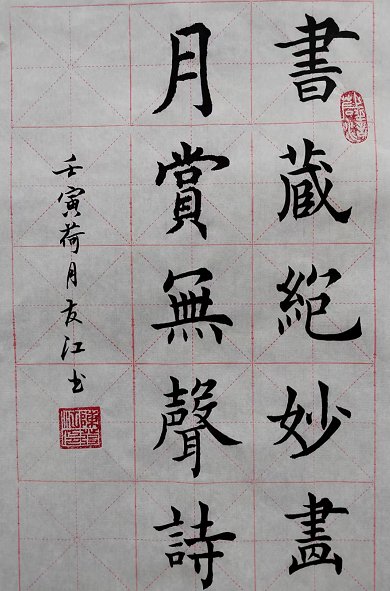 書藏絕妙畫
月賞無聲詩
壬寅荷月友江书